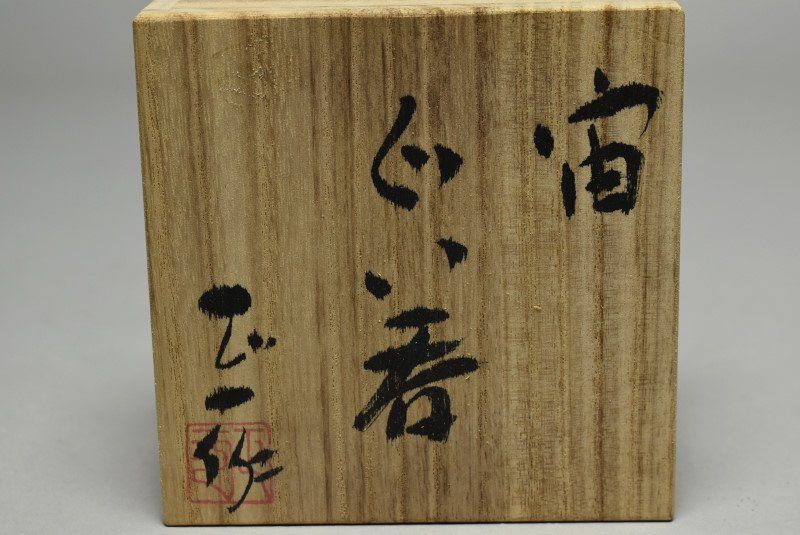 宙
ぐい呑
正一作